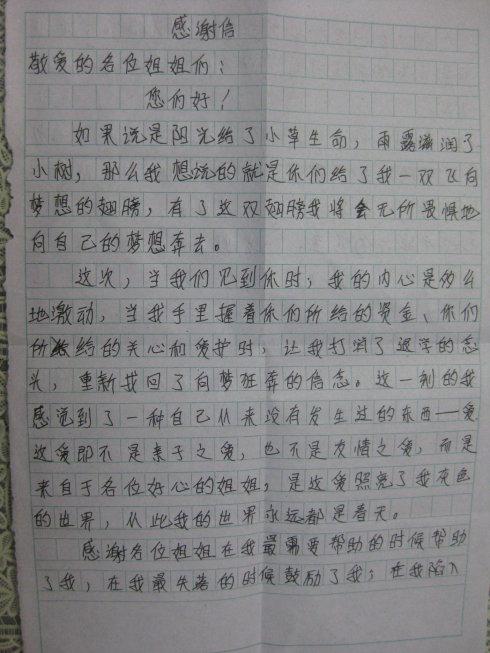 感谢信
敬爱的各位姐姐们：
您们好！
如果说是阳光给了小草生命，雨露滋润了
小树，那么我想说的就是你们给了我一双飞向
梦想的翅膀，有了这双翅膀我将会无所畏惧地
向自己的梦想奔去。
这次，当我们见到你时，我的内心是的么
地激动，当我手里握着你们所给的资金、你们
所给的关心和爱护时，让我打消了退学的念
头，重新找回了向梦狂奔的信念。这一刻的我
感觉到了一种自己从来没有发生过的东西——爱
这爱即不是亲子之爱，也不是友情之爱，而是
来自于各位好心的姐姐，是这爱照亮了我灰色
的世界，从此我的世界永远都是春天。
感谢各位姐姐在我最需要帮助的时候帮助
了我，在我最失落的时候鼓励了我；在我陷入